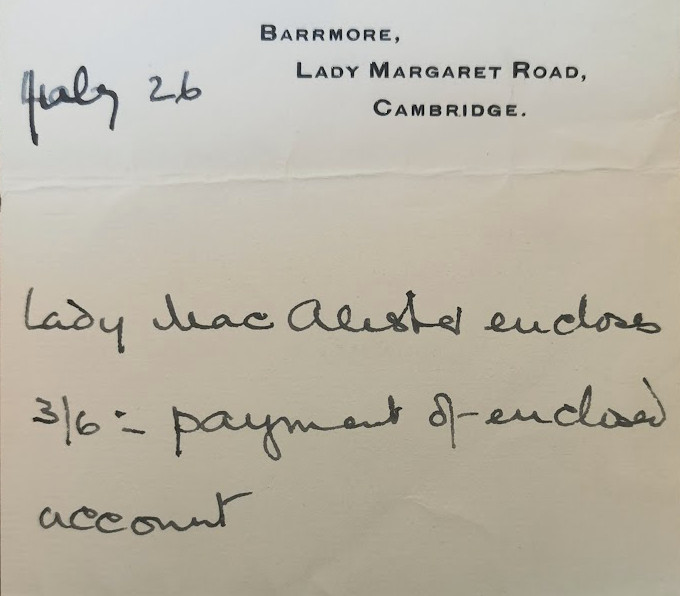 BARRMORE,
LADY MARGARET ROAD,
CAMBRIDGE.
July 26
Lady MacAlister encloses
3/6 := payment of enclosed
account